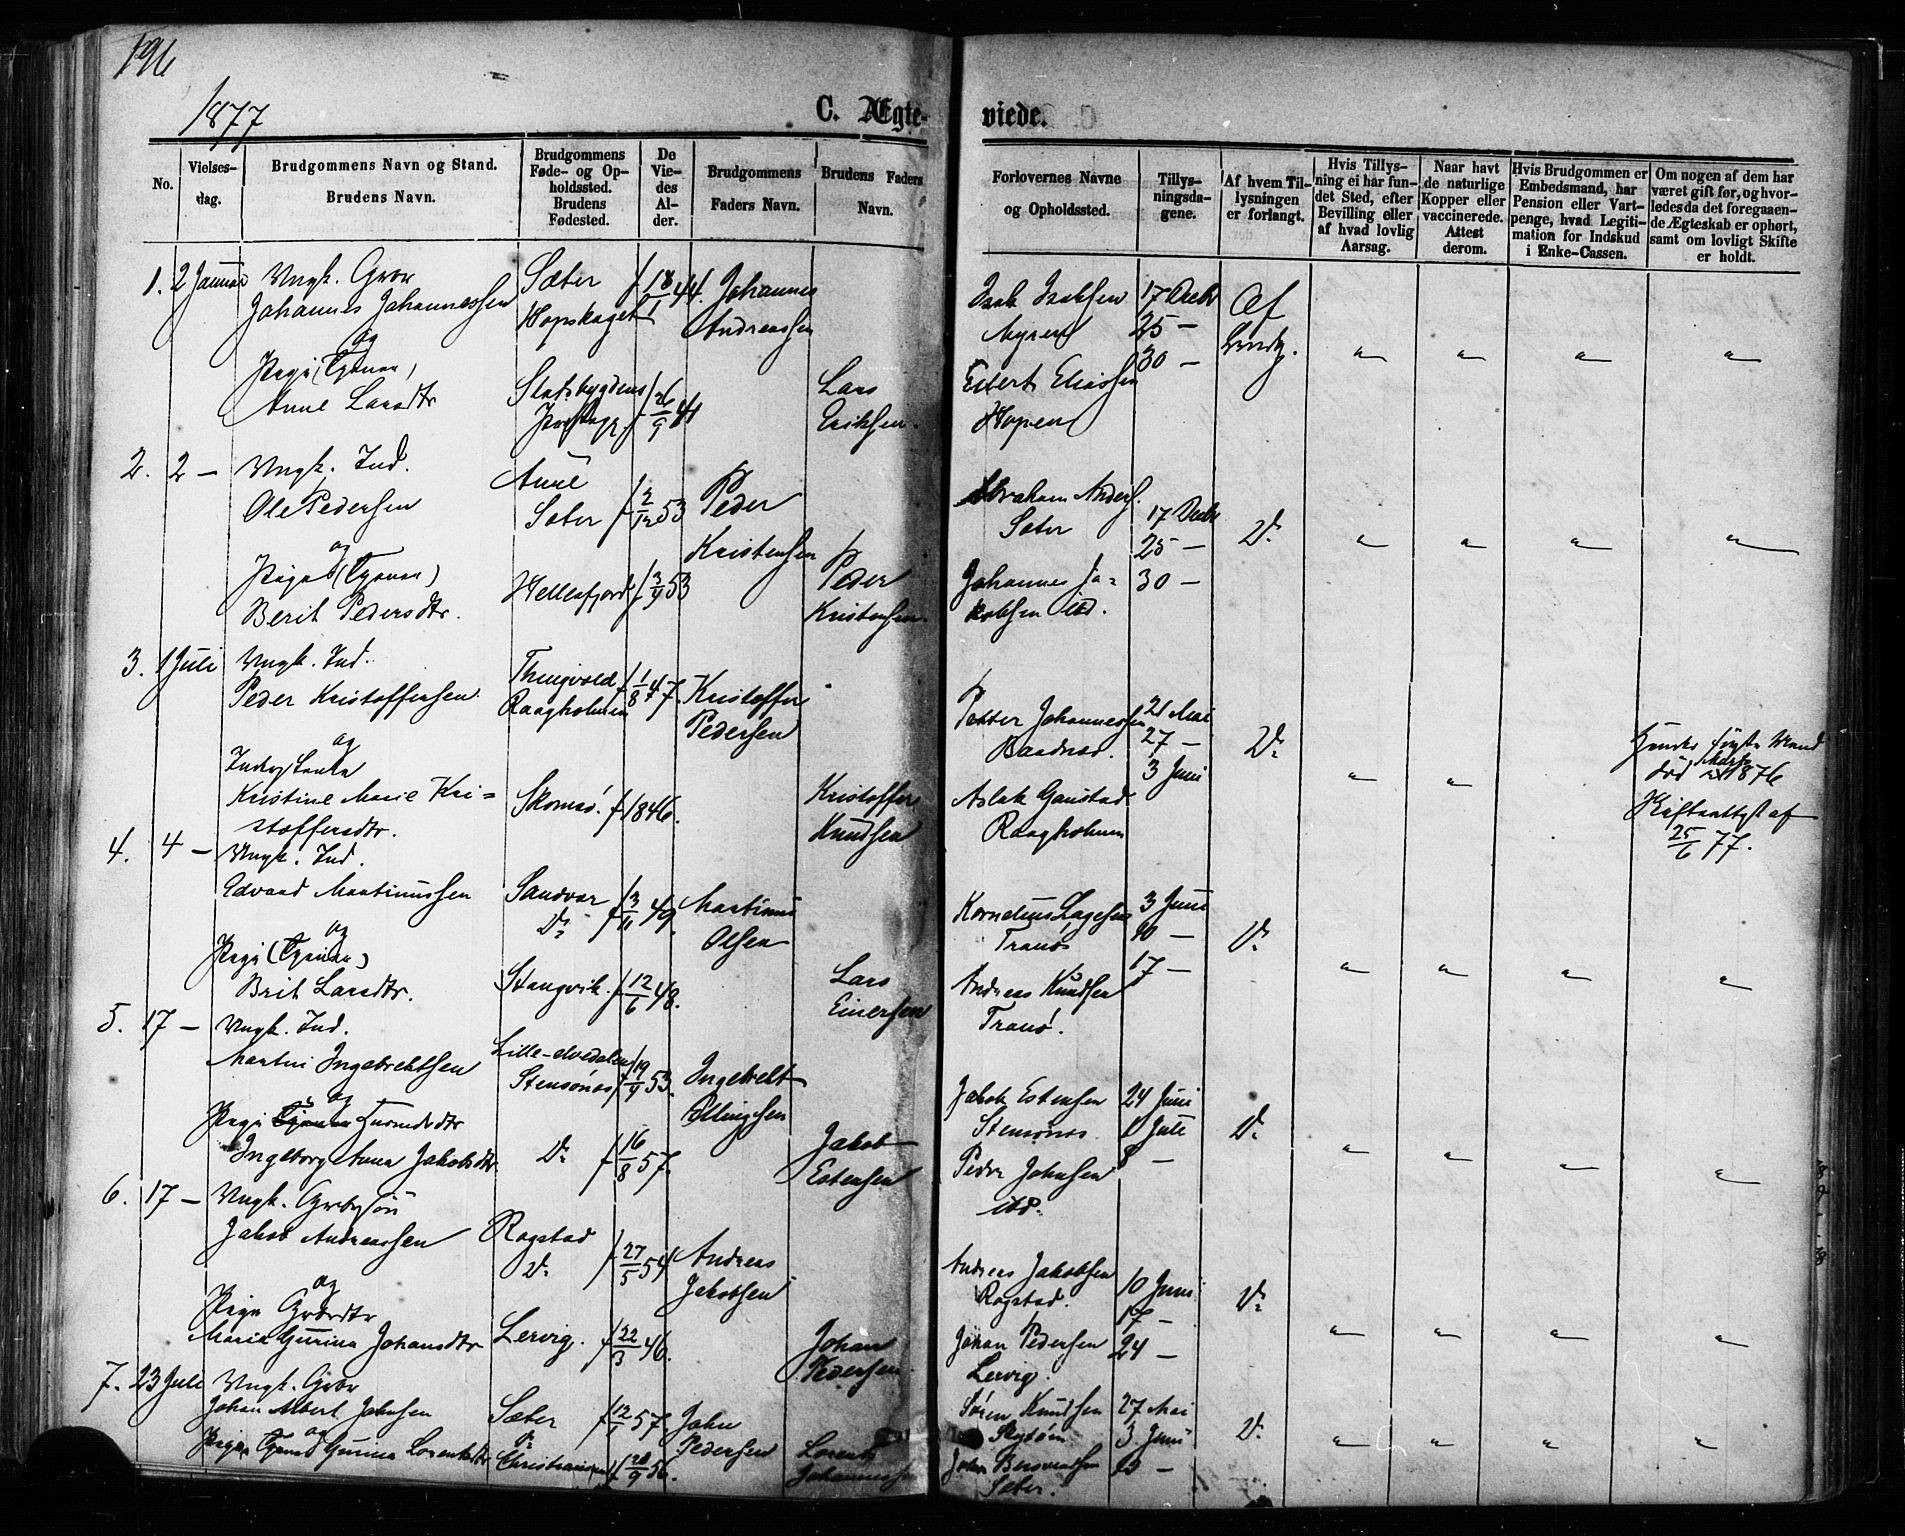 196
1877
C. Ægte-
viede.
No.
Vielses-
dag.
Brudgommens Navn og Stand.
Brudens Navn.
Brudgommens
Føde- og Op-
holdssted.
Brudens
Fødested.
De
Vie-
des
Al-
der.
Brudgommens
Faders Navn.
Brudens Faders
Navn.
Forlovernes Navne
og Opholdssted.
Tillys-
ningsda-
gene.
Af hvem Til-
lysningen
er forlangt.
Hvis Tillys-
ning ei har fun-
det Sted, efter
Bevilling eller
af hvad lovlig
Aarsag.
Naar havt
de naturlige
Kopper eller
vaccinerede.
Attest
derom.
Hvis Brudgommen er
Embedsmand, har
Pension eller Vart-
penge, hvad Legiti-
mation for Indskud
i Enke-Cassen.
Om nogen af dem har
været gift før, og hvor-
ledes da det foregaaen-
de Ægteskab er ophørt,
samt om lovligt Skifte
er holdt.
1. 2 Januar Ungk. Gbr Sæter f 18/1 44. Johannes
Johannes Johannessen Hopskaget Andreassen
og
Pige (Tjener)
Anne Larsdtr f 26/9 41 Lars
Eriksen.
Isak Isaksen 17 Decbr Af
Myren 25 —
30 —
Eilert Eliassen
Hopen
2. 2 — Ungk. Ind. Aune
Ole Pedersen Sæter f 2/12 53 Peder
og Kristensen
Pige (Tjener) Hellesfjord f 3/9 53 Peder
Berit Pedersdtr. Kristensen.
Abraham Anders.
Sæter 17 Decbr D:
25 —
Johannes Ja= 30 —
kobsen ibd.
3. 1 Juli Ungk. Ind. Thingvold f 1/8 47. Kristoffer
Peder Kristoffersen Raagholmen Pedersen
og
Kristine Marie Kri= Skomsø. f 1846. Kristoffer
stoffersdtr. Knudsen
Petter Johannessen 21 Mai
27 — D:
3 Juni
Aslak Gaustad
Raagholmen
død Marts 1876
25/6 77.
4. 4 — Ungk. Ind.
Edvard Martinussen Sandvær f 3/11 49. Martinus
og D: Olsen
Pige (Tjener)
Brit Larsdtr. Stangvik. f 12/6 48. Lars
Einersen
Kornelius Lagesen 3 Juni
Tranø 10 — D:
17 —
Andreas Knudsen
Tranø.
5. 17 — Ungk. Ind. Lille-elvedalen
Martin Ingebrektsen Stensønes f 19/9 53. Ingebrekt
og Ellingsen
Pige Tjener Husmdsdtr
Ingeborg Anna Jakobsdtr D: f 16/8 57. Jakob
Estensen
Jakob Estensen 24 Juni
Stensønes. 1 Juli D:
Peder Johnsen 8 —
ibd.
6. 17 — Ungk. Gbrsøn Rogstad
Jakob Andreassen D: f 27/5 54 Andreas
og Jakobsen
Pige Gbrdtr
Maria Gurina Johansdtr Lervig. f 22/3 46. Johan
Pedersen
Andreas Jakobsen 10 Juni
Rogstad. 17 — D:
Johan Pedersen 24 —
Lervig.
7. 23 Juli Ungk. Gbr
Johan Albert Johnsen Sæter f 12/1 57. John
og Pedersen
Pige, Tjener Gurina Lorentsdtr f 20/9 56. Lorents
Søren Knudsen 27 Mai
3 Juni D:
10 —
Sæter.